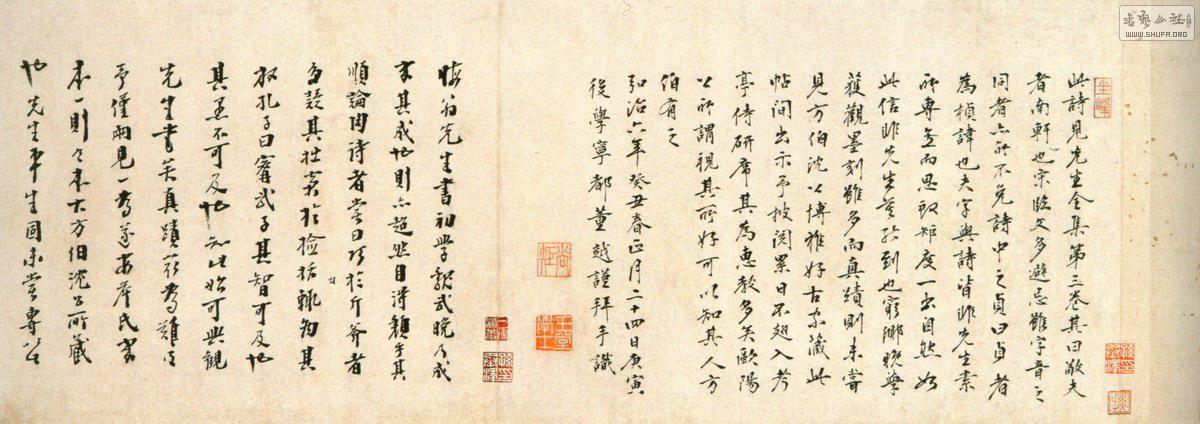 此詩見先生全集第三卷其曰敬夫
者南軒也宋臨文多避忌雖字音之
同者亦所不免詩中之貞曰貞者
為楨諱也夫字與詩皆非先生素
所專意而思致矩度一出自然如
此信非先生莫能到也窮鄉晚學
獲觀墨刻雖多而真蹟則未嘗
見方伯沈公博雅好古家藏此
帖間出示予披閱累日不翅入考
亭侍研席其為惠教多矣歐陽
公所謂視其所好可以知其人方
伯有之
弘治六年癸丑春正月二十四日庚寅
後學寧都董越謹拜手識
晦翁先生書初學魏武晚乃成
家其成也則亦超然自得類乎其
順論周詩者嘗曰巧於斤斧者
多疑其拙窘於檢括輒為其
放孔子曰甯武子其智可及也
其愚不可及也知此始可與觀
先生書矣真蹟最為難得
予僅兩見一為
本一則今方伯沈公所藏
也先生平生固未嘗專
WWW.SHUFA.ORG